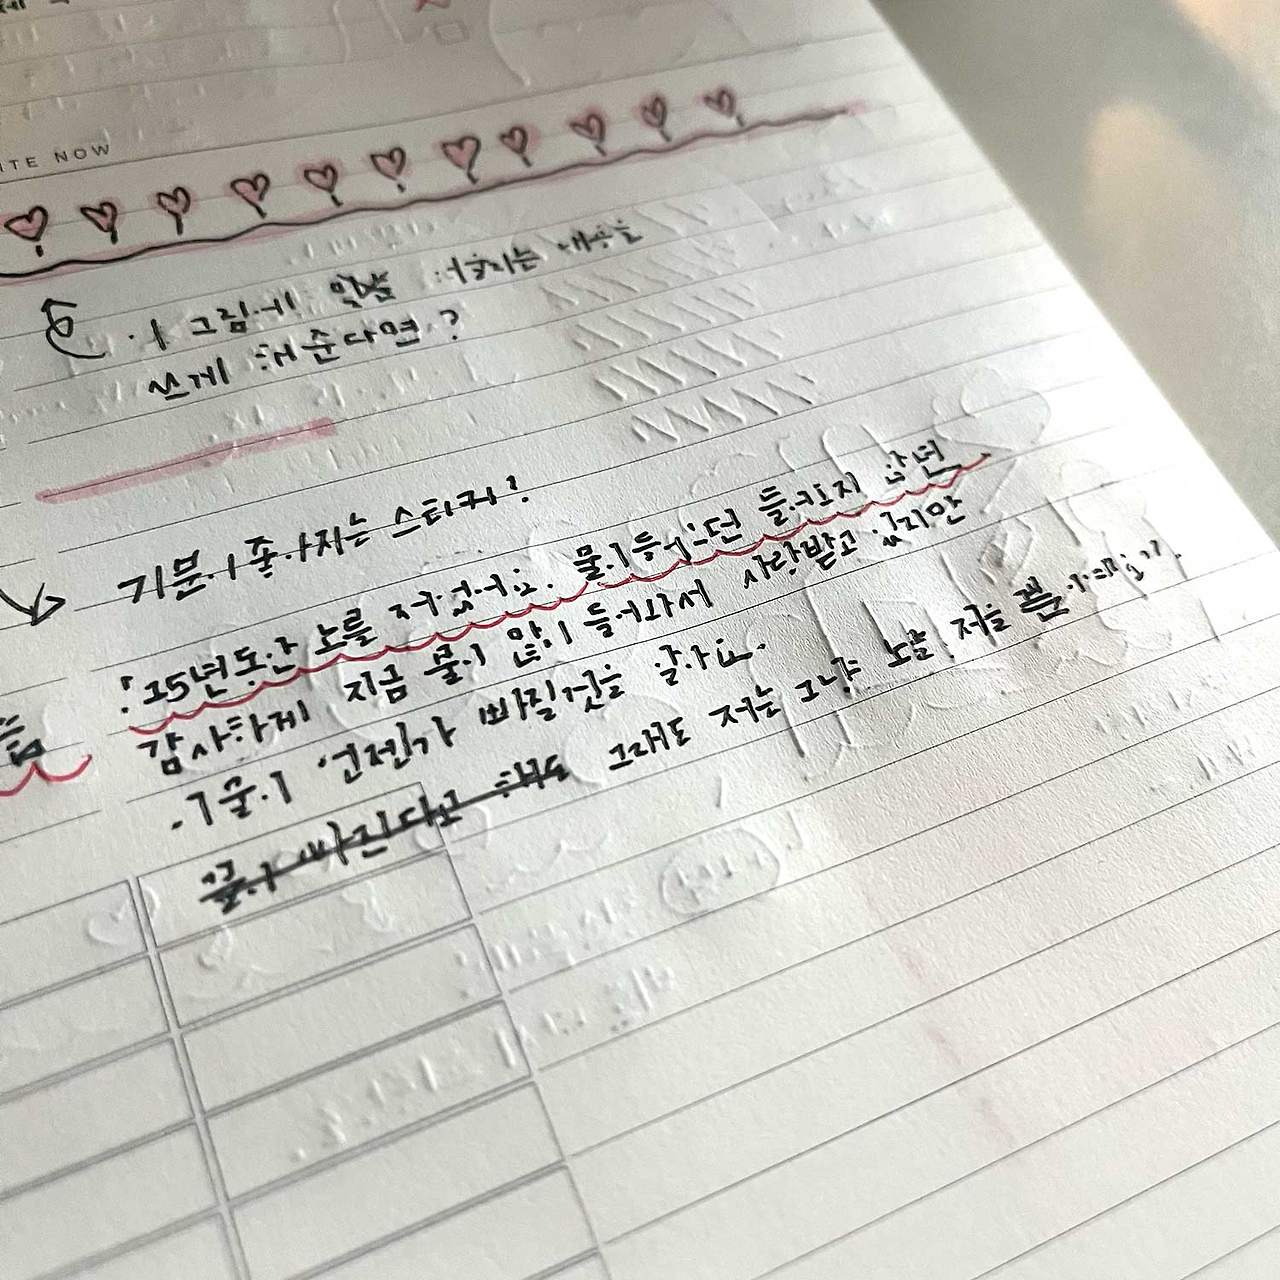 ITE NOW
이 그림에 알맞 어울리는 내용을
쓰게 해준다면?
기분이 좋아지는 스티커!
: 15년동안 노를 저었어요. 물이 들어오던 들어오지 않던
감사하게 지금 물이 많이 들어와서 사랑받고 있지만
이 물이 언젠가 빠질것을 알아요.
물이 빠진다고 해도 그래도 저는 그냥 노를 저을